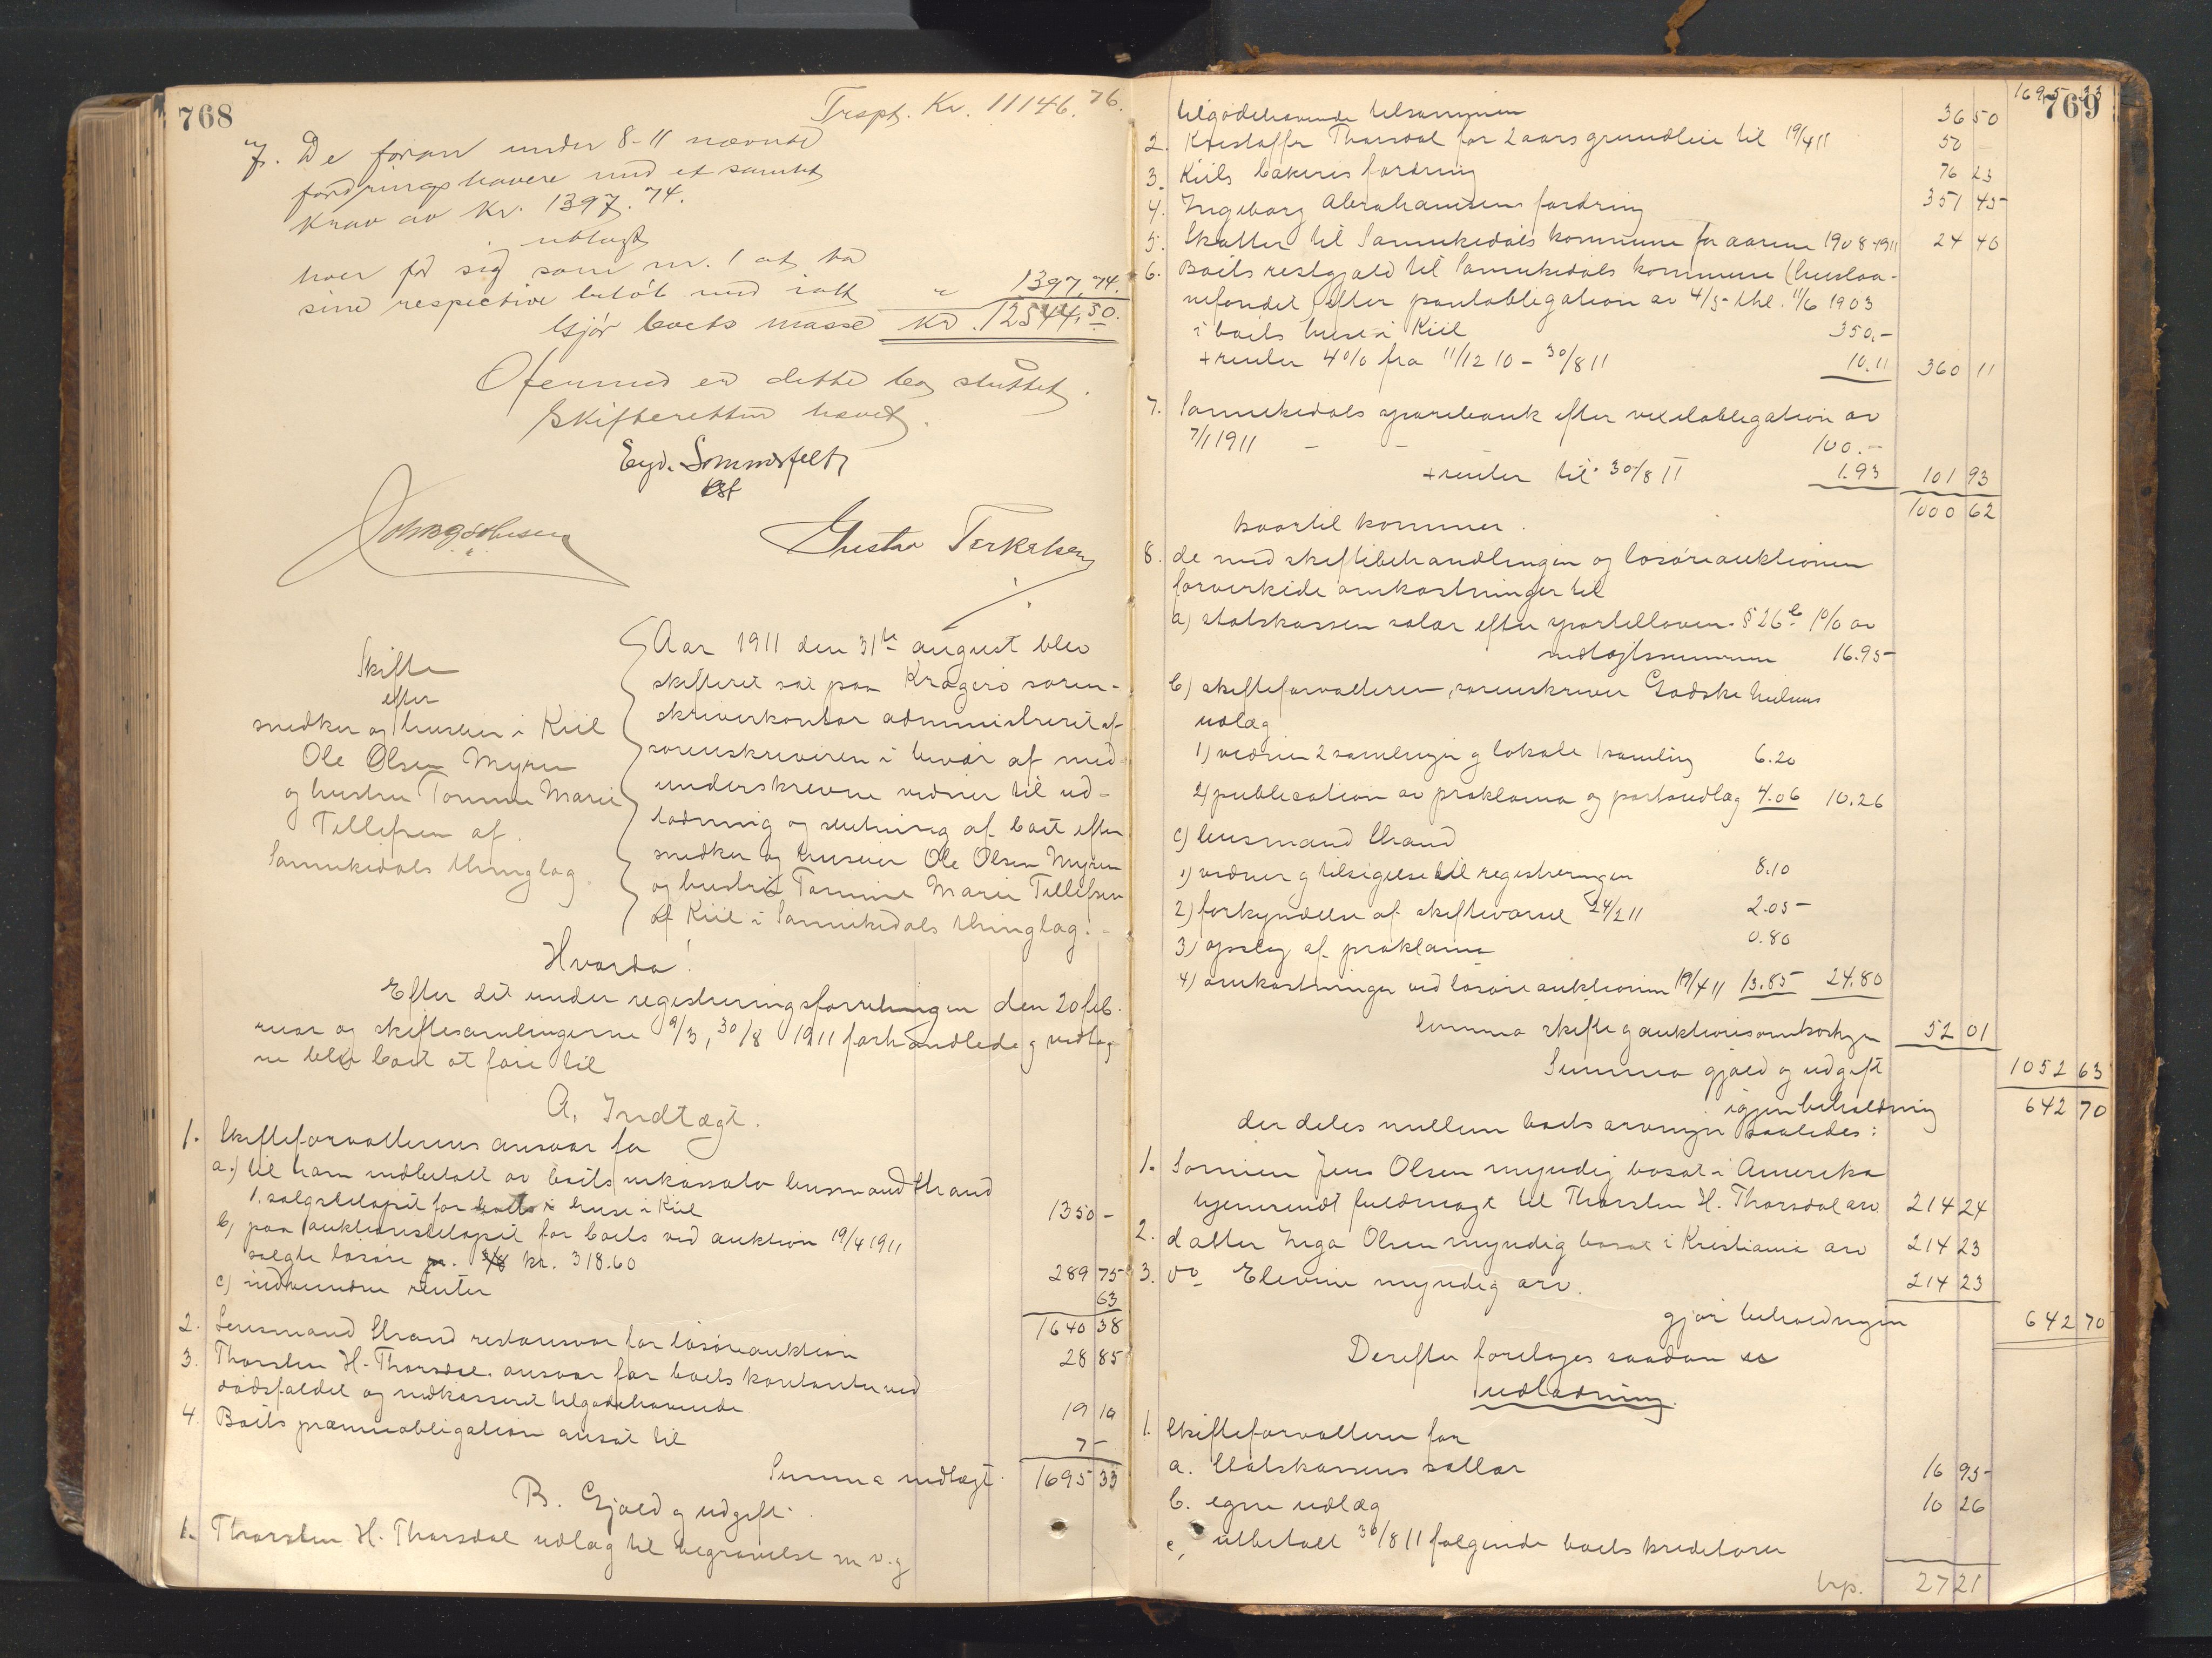 768
Trspt. Kr. 11146.76.
7. De foran under 8-11 nævnte
fordringshavere med et samlet
krav av Kr. 1397.74.
utlagt
hver for sig som nr. 1 at ta
sine respective beløb med ialt " 1397,74.
Gjør boets masse Kr. 12544,50.
Ofenmed er dette bo sluttet.
Skifteretten hævet.
Eyd. Sommerfelt
Gustav Terkelsen
Skifte
efter
snedker og huseier i Kiil
Ole Olsen Myren
og hustru Tomine Marie
Tellefsen af
Sannikedals thinglag.
Aar 1911 den 31te august blev
skifteret sat paa Kragerø soren-
skriverkontor administreret af
sorenskriveren i overvær af med-
underskrevne vidner til ud-
lodning og slutning af boet efter
snedker og huseier Ole Olsen Myren
og hustru Tomine Marie Tellefsen
af Kiil i Sannikedals thinglag.
Hvorda!
Efter det under registreringsforretningen den 20 feb-
ruar og skiftesamlingerne 9/3, 30/8 1911 forhandlede og vedtag-
ne blev boet at føre til
A. Indtægt.
1. Skifteforvalterens ansvar for
a.) til ham indbetalt av boets inkassator lensmand Strand
1. salgsbeløpet for huse i Kiil 1350 -
b) paa auktionsbeløpet for boets ved auktion 19/4 1911
solgte løsøre kr. 318.60 289 75
c) indvundne renter 63
1640 38
2. Lensmand Strand restansvar for løsøreauktion 28 85
3. Thorsten H. Thorsdal ansvar for boets kontanter ved
dødsfaldet og indkasseret tilgodehavende 19 10
4. Boets præmieobligation ansat til 7 -
Summa indtægt. 1695 33
B. Gjæld og udgift.
1. Thorsten H. Thorsdal udlæg til begravelse m v. og
769
1695 33
tilgodehavende tilsammen 36 50
2. Kristoffer Thorsdal for 2 aars grundleie til 19/4 11 50
3. Kiils bakeris fordring 76 23
4. Ingeborg Abrahamsens fordring 351 45
5. Skatter til Sannikedals kommune for aarene 1908-1911 24 40
6. Boets restgjæld til Sannikedals kommune (huslaa-
nefondet) efter pantobligation av 4/5 thl. 11/6 1903
i boets huse i Kiil 350,-
+ renter 4% fra 11/12 10 - 30/8 11 10.11 360 11
7. Sannikedals sparebank efter vexelobligation av
7/1 1911 - - 100.-
+ renter til 30/8 11 1.93 101 93
1000 62
hvortil kommer.
8. de med skiftebehandlingen og løsøreauktionen
forvirkede omkostninger til
a) statskassen salær efter sportelloven § 26 b 1% av
indtægtssummen 16.95
b) skifteforvalteren, sorenskriver Godske Nielsens
udlæg
1) vidner 2 samlinger og lokale 1 samling 6.20
2) publication av proklama og portoudlæg 4.06 10.26
c) lensmand Strand
1) vidner og tilsigelse til registreringen 8.10
2) forkyndelse af skiftevarsel 24/2 11 2.05
3) opslag af proklama 0.80
4) omkostninger ved løsøreauktionen 19/4 11 13.85 24.80
Summa skifte og auktionsomkostninger 52 01
Summa gjæld og udgift 1052 63
igjen beholdning 642 70
der deles mellem boets arvinger saaledes:
1. Sønnen Jens Olsen myndig bosat i Amerika
hjemsendt fuldmagt til Thorsten H. Thorsdal arv 214 24
2. datter Inga Olsen myndig bosat i Kristiania arv 214 23
3. do Elevine myndig arv. 214 23
gjør beholdningen 642 70
Derefter foretoges saadan
udlodning.
1. Skifteforvalteren for
a. Statskassens sallær 16 95
b. egne udlæg 10 26
c, utbetalt 30/8 11 følgende boets kreditorer
trp. 27 21